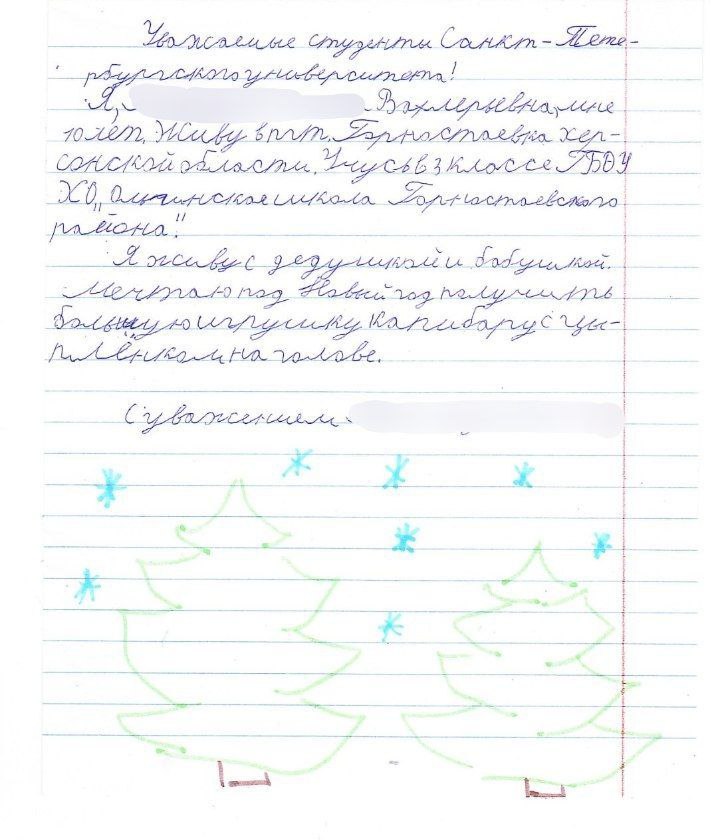 Уважаемые студенты Санкт-Пете-
рбургского университета!
Я, Валерьевна, мне
10 лет. Живу в пгт. Горностаевка Хер-
сонской области. Учусь в 3 классе ГБОУ
ХО „ школа Горностаевского
района".
Я живу с дедушкой и бабушкой.
Мечтаю под Новый год получить
большую игрушку капибару с цы-
плёнком на голове.
С уважением